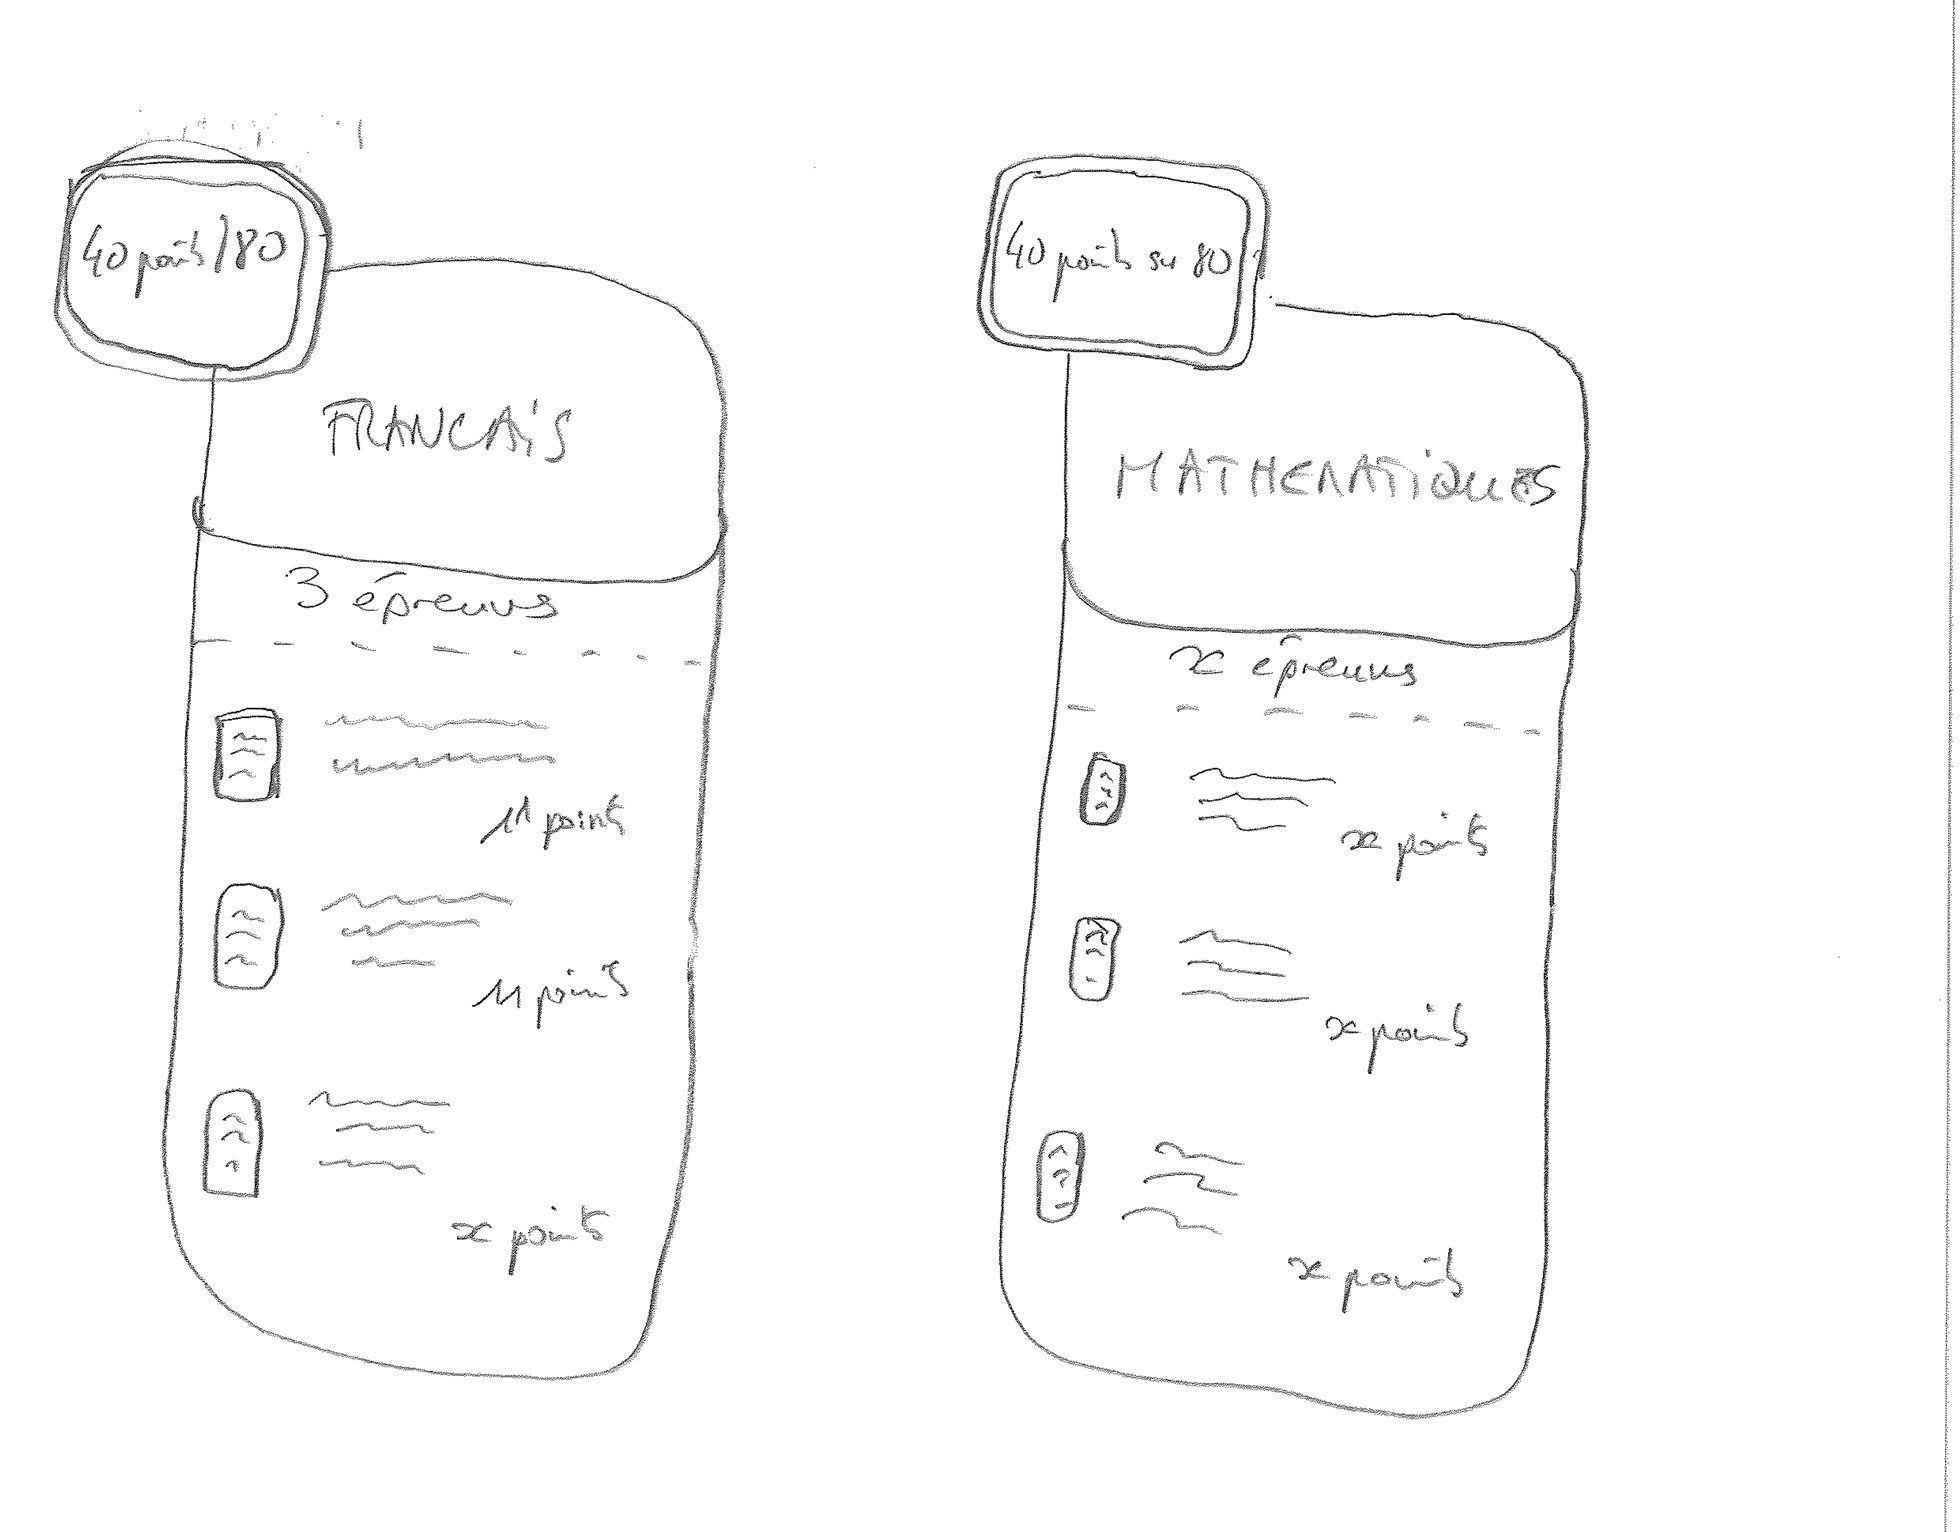 40 points/80
FRANCAIS
3 épreuves
11 points
11 points
x points
40 points sur 80
MATHEMATIQUES
x épreuves
x points
x points
x points